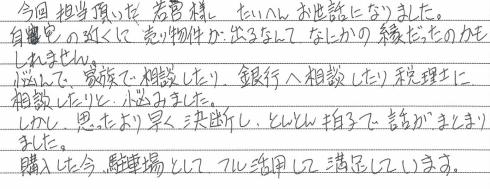 今回担当頂いた 若宮様 たいへんお世話になりました。
自宅の近くに売り物件が出るなんてなにかの縁だったのかも
しれません。
悩んで、家族で相談したり、銀行へ相談したり税理士に
相談したりと、悩みました。
しかし、思ったより早く決断し、とんとん拍子で話がまとまり
ました。
購入した今、駐車場としてフル活用して満足しています。